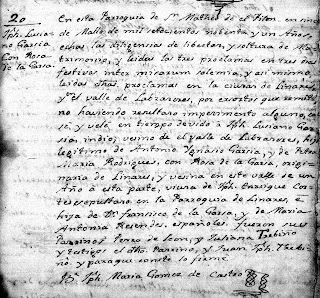 20
Jph. Lucia
no Garcia
Con Rosa
de la Garsa.
En esta Parroquia de Sn. Matheo del Pilon en cinco
de Mallo de mil setecientos nobenta y un Años,
echas las diligencias de libertad, y soltura de Ma-
trimonio, y leidas las tres proclamas en tres dias
festivos inter misarum solemnia, y asi mismo
leidas dhas. proclamas en la ciudad de Linares
y el valle de Labradores, por exortos que remiti
no haviendo resultado impedimento alguno, ca-
sé, y velé en tiempo devido à Jph. Lusiano Gar-
sia, indio, vesino de el valle de Labradores, hijo
legitimo de Antonio Ignacio Garsia, y de Petra
Maria Rodrigues, con Rosa de la Garsa, origi-
naria de Linares, y vesina en este valle de un
Año à esta parte, viuda de Jph. Enrique Cor-
tes sepultado en la Parroquia de Linares, è
hija de Dn. Fransisco de la Garsa, y de Maria
Antonia Resendes, españoles, fueron sus
Padrinos Pedro de Leon, y Juliana Trebiño
y testigos el dho. Padrino, y Juan Jph. Trebi-
ño, y paraque conste lo firmé
Br. Jph. Maria Gomez de Castro